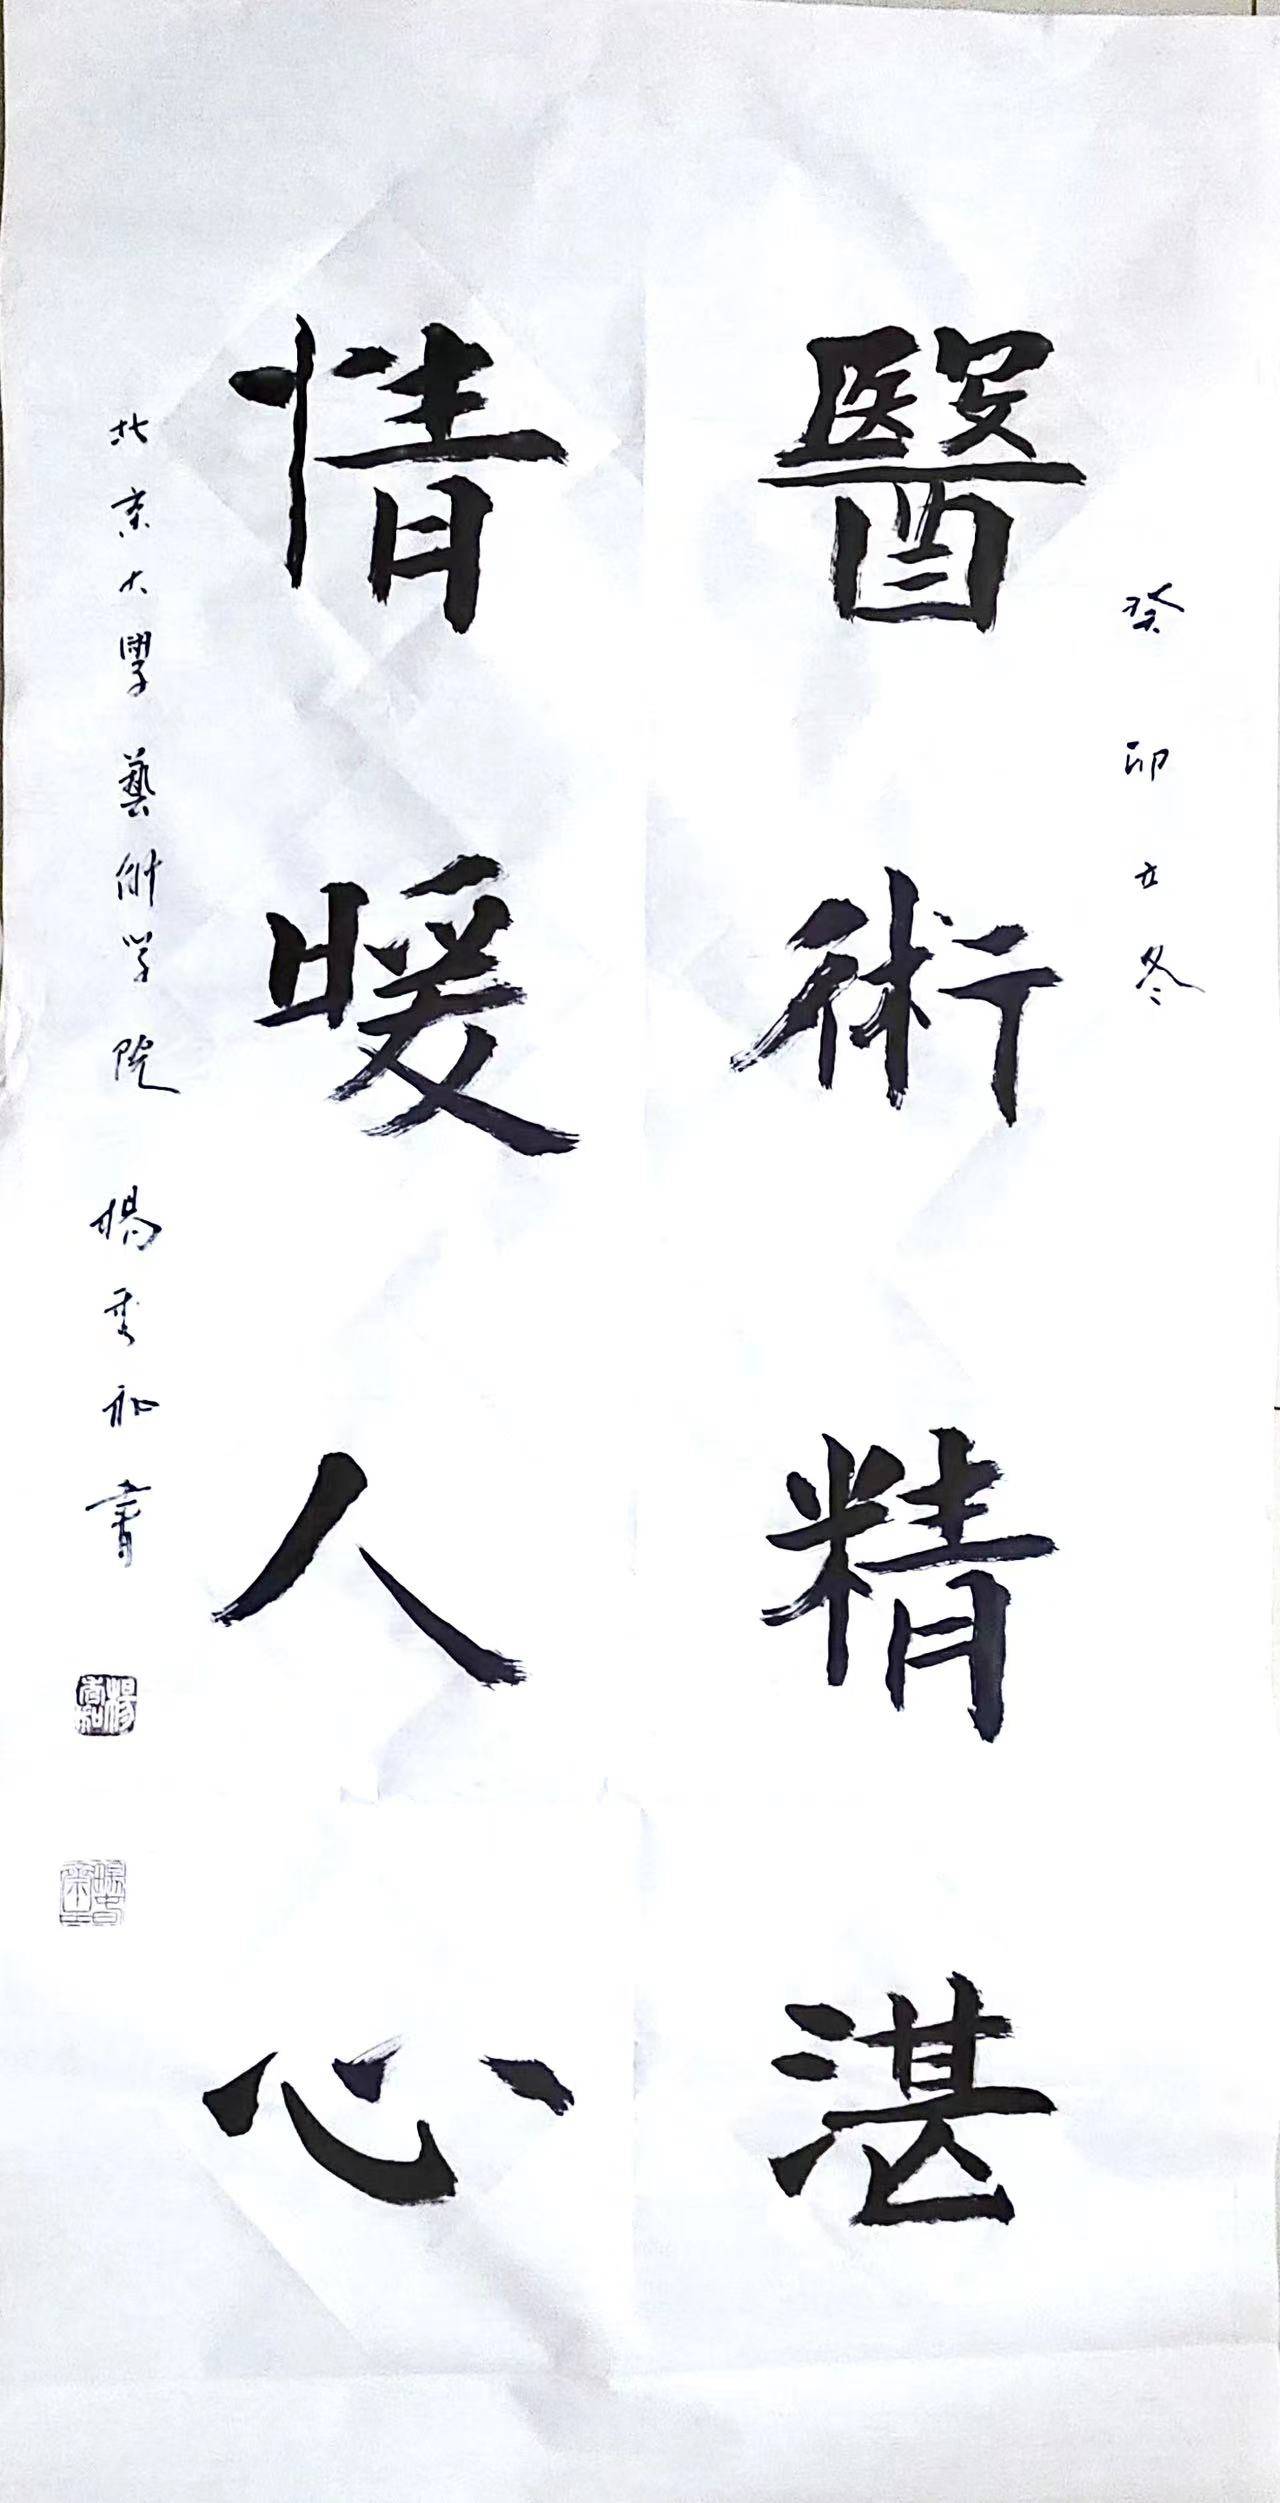 癸卯立冬
醫術精湛
情暖人心
北京大學藝術学院 楊秀和書